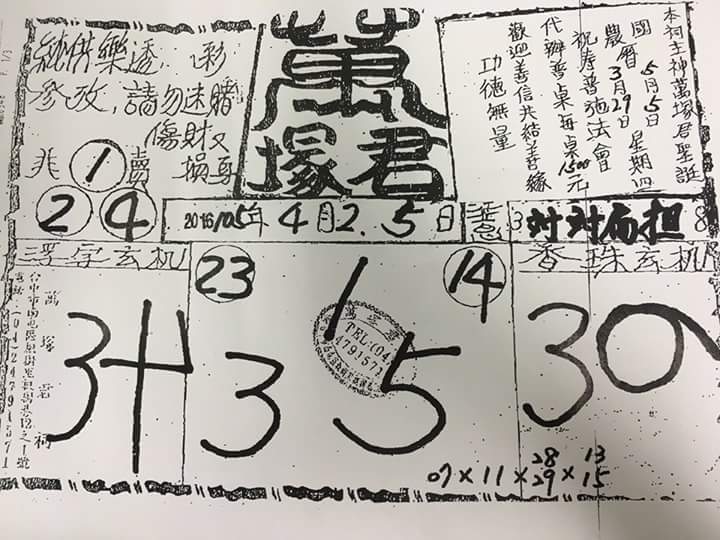 純供樂透 彩
參改,請勿迷賭
傷財又
損身
兆 1 賣
2 4
萬
塚君
本祠主神萬塚君聖誕
國 5月5日 星期四
農曆 3月29日
祝壽普施法會
代辦普桌每桌1500元
歡迎善信共結善緣
功德無量
2016/05年 4月2.5日
3 対対両担 8
浮字玄机
23
14
香珠玄机
3
1
3 5
30
TEL:(04)
4791571
萬塚君祠
28 13
07×11×29×15